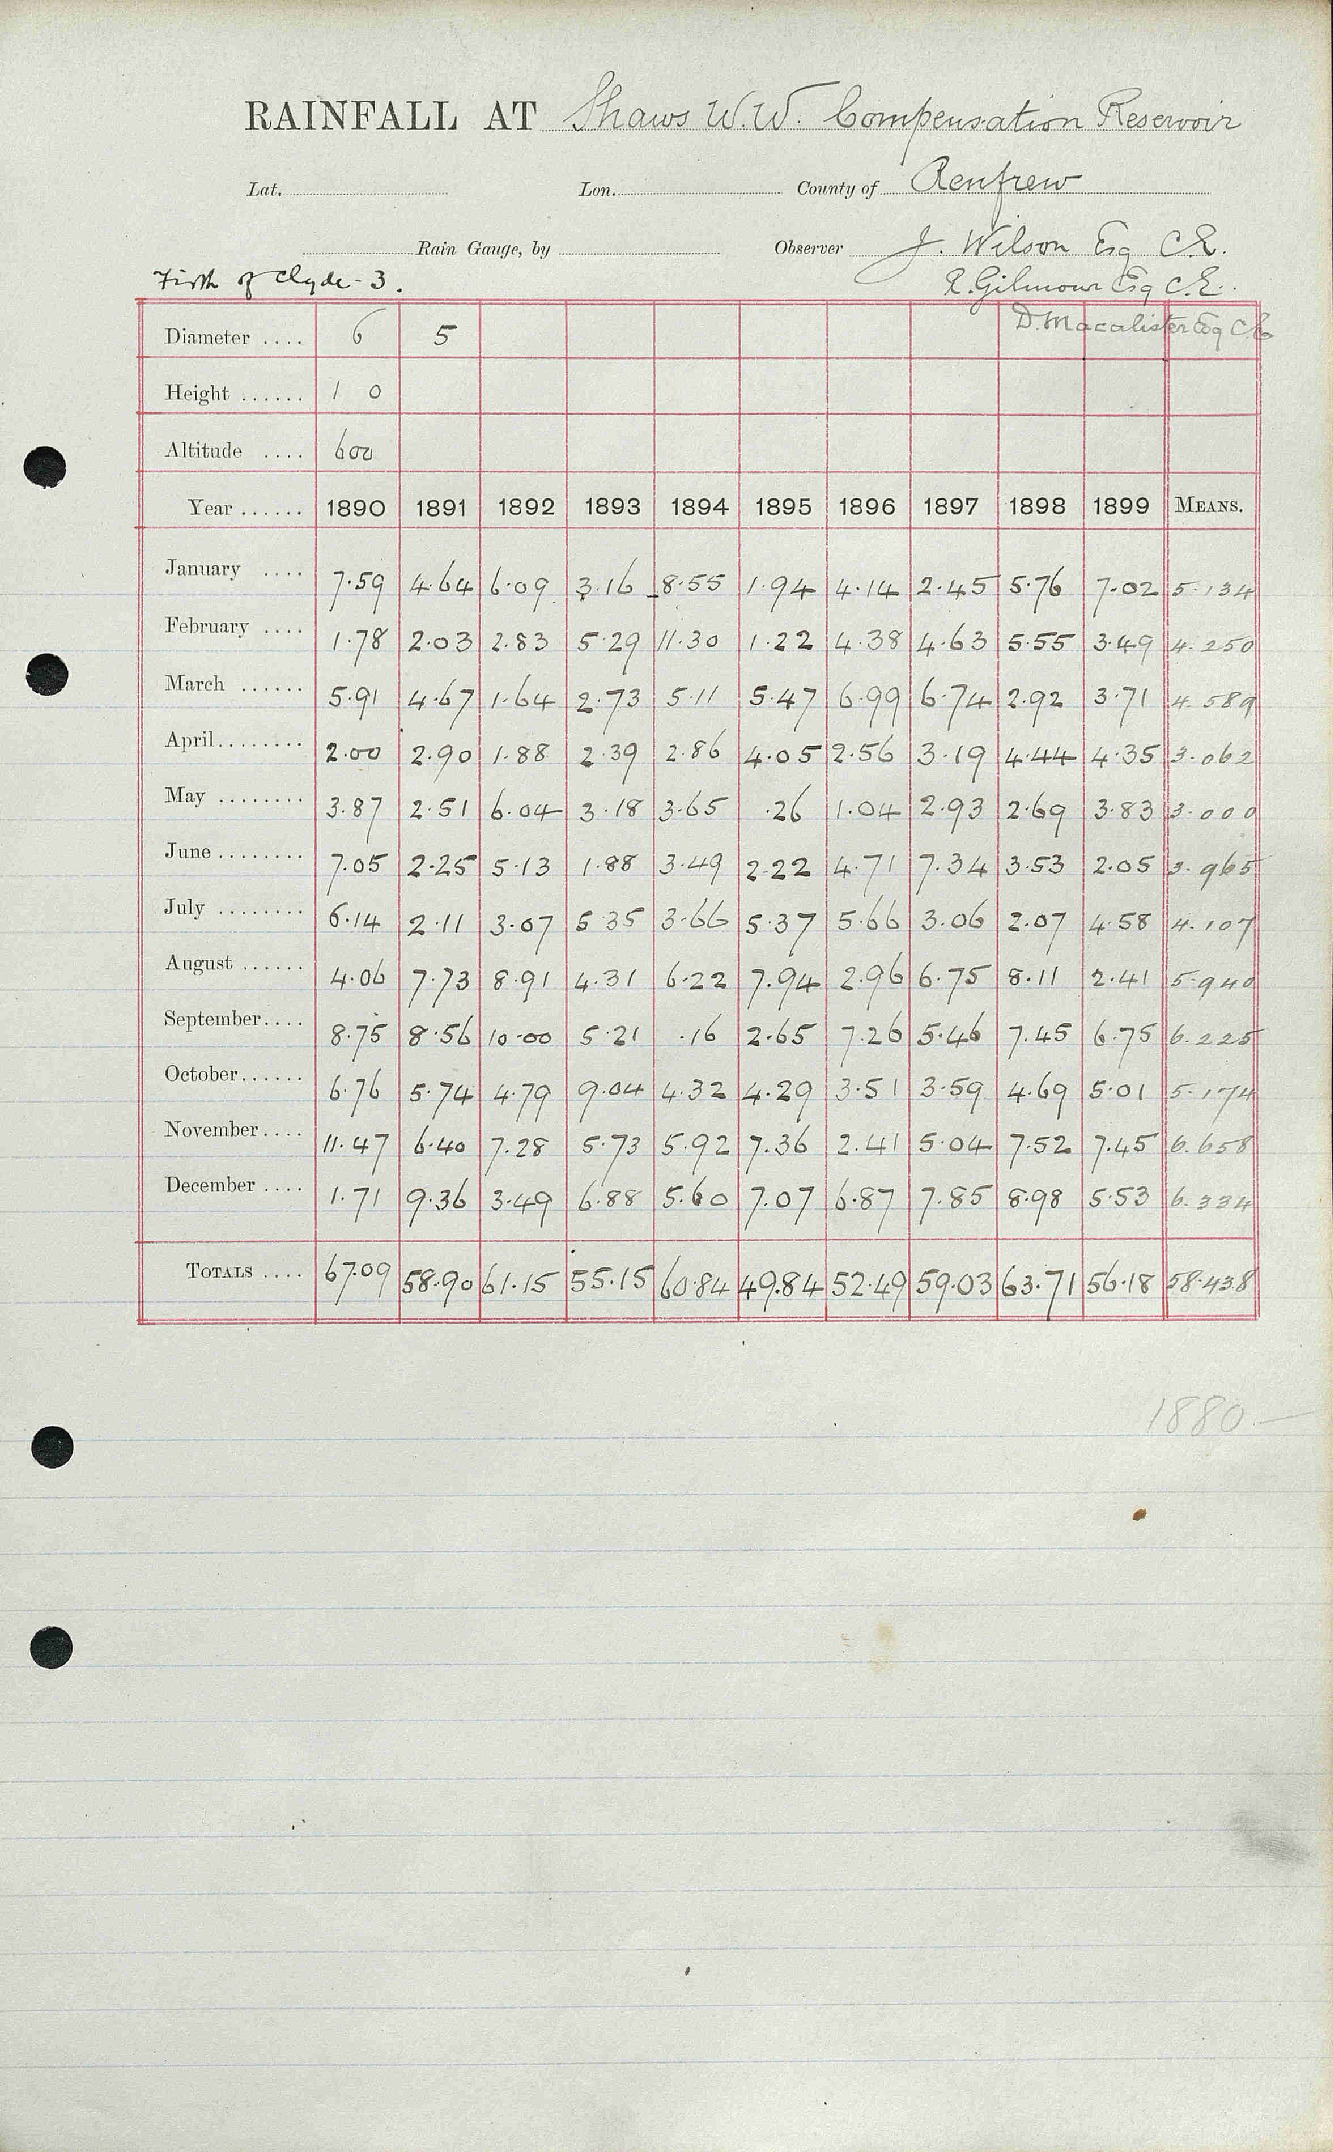 RAINFALL AT Shaws W.W. Compensation Reservoir
Lat. Lon. County of Renfrew
Rain Gauge, by Observer J. Wilson Esq C.E.
Firth of Clyde-3. R. Gilmour Esq C.E.
D. Macalister Esq C.E
Diameter .... 6 5
Height ...... 1 0
Altitude .... 600
Year ...... 1890 1891 1892 1893 1894 1895 1896 1897 1898 1899 MEANS.
January .... 7.59 4.64 6.09 3.16 8.55 1.94 4.14 2.45 5.76 7.02 5.134
February .... 1.78 2.03 2.83 5.29 11.30 1.22 4.38 4.63 5.55 3.49 4.250
March ...... 5.91 4.67 1.64 2.73 5.11 5.47 6.99 6.74 2.92 3.71 4.589
April ........ 2.00 2.90 1.88 2.39 2.86 4.05 2.56 3.19 4.44 4.35 3.062
May ........ 3.87 2.51 6.04 3.18 3.65 .26 1.04 2.93 2.69 3.83 3.000
June ........ 7.05 2.25 5.13 1.88 3.49 2.22 4.71 7.34 3.53 2.05 3.965
July ........ 6.14 2.11 3.07 5.35 3.66 5.37 5.66 3.06 2.07 4.58 4.107
August ...... 4.06 7.73 8.91 4.31 6.22 7.94 2.96 6.75 8.11 2.41 5.940
September .... 8.75 8.56 10.00 5.21 .16 2.65 7.26 5.46 7.45 6.75 6.225
October ...... 6.76 5.74 4.79 9.04 4.32 4.29 3.51 3.59 4.69 5.01 5.174
November .... 11.47 6.40 7.28 5.73 5.92 7.36 2.41 5.04 7.52 7.45 6.658
December .... 1.71 9.36 3.49 6.88 5.60 7.07 6.87 7.85 8.98 5.53 6.334
TOTALS .... 67.09 58.90 61.15 55.15 60.84 49.84 52.49 59.03 63.71 56.18 58.438
1880 —